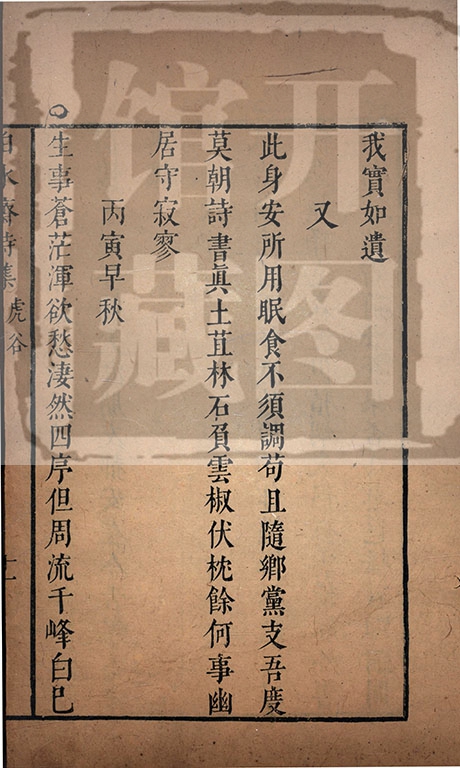 我實如遺
又
此身安所用眠食不須調苟且隨鄉黨支吾度
莫朝詩書眞土苴林石負雲椒伏枕餘何事幽
居守寂寥
丙寅早秋
生事蒼茫渾欲愁淒然四序但周流千峰白巳
白水齋詩集 虎谷
十一
开图馆藏